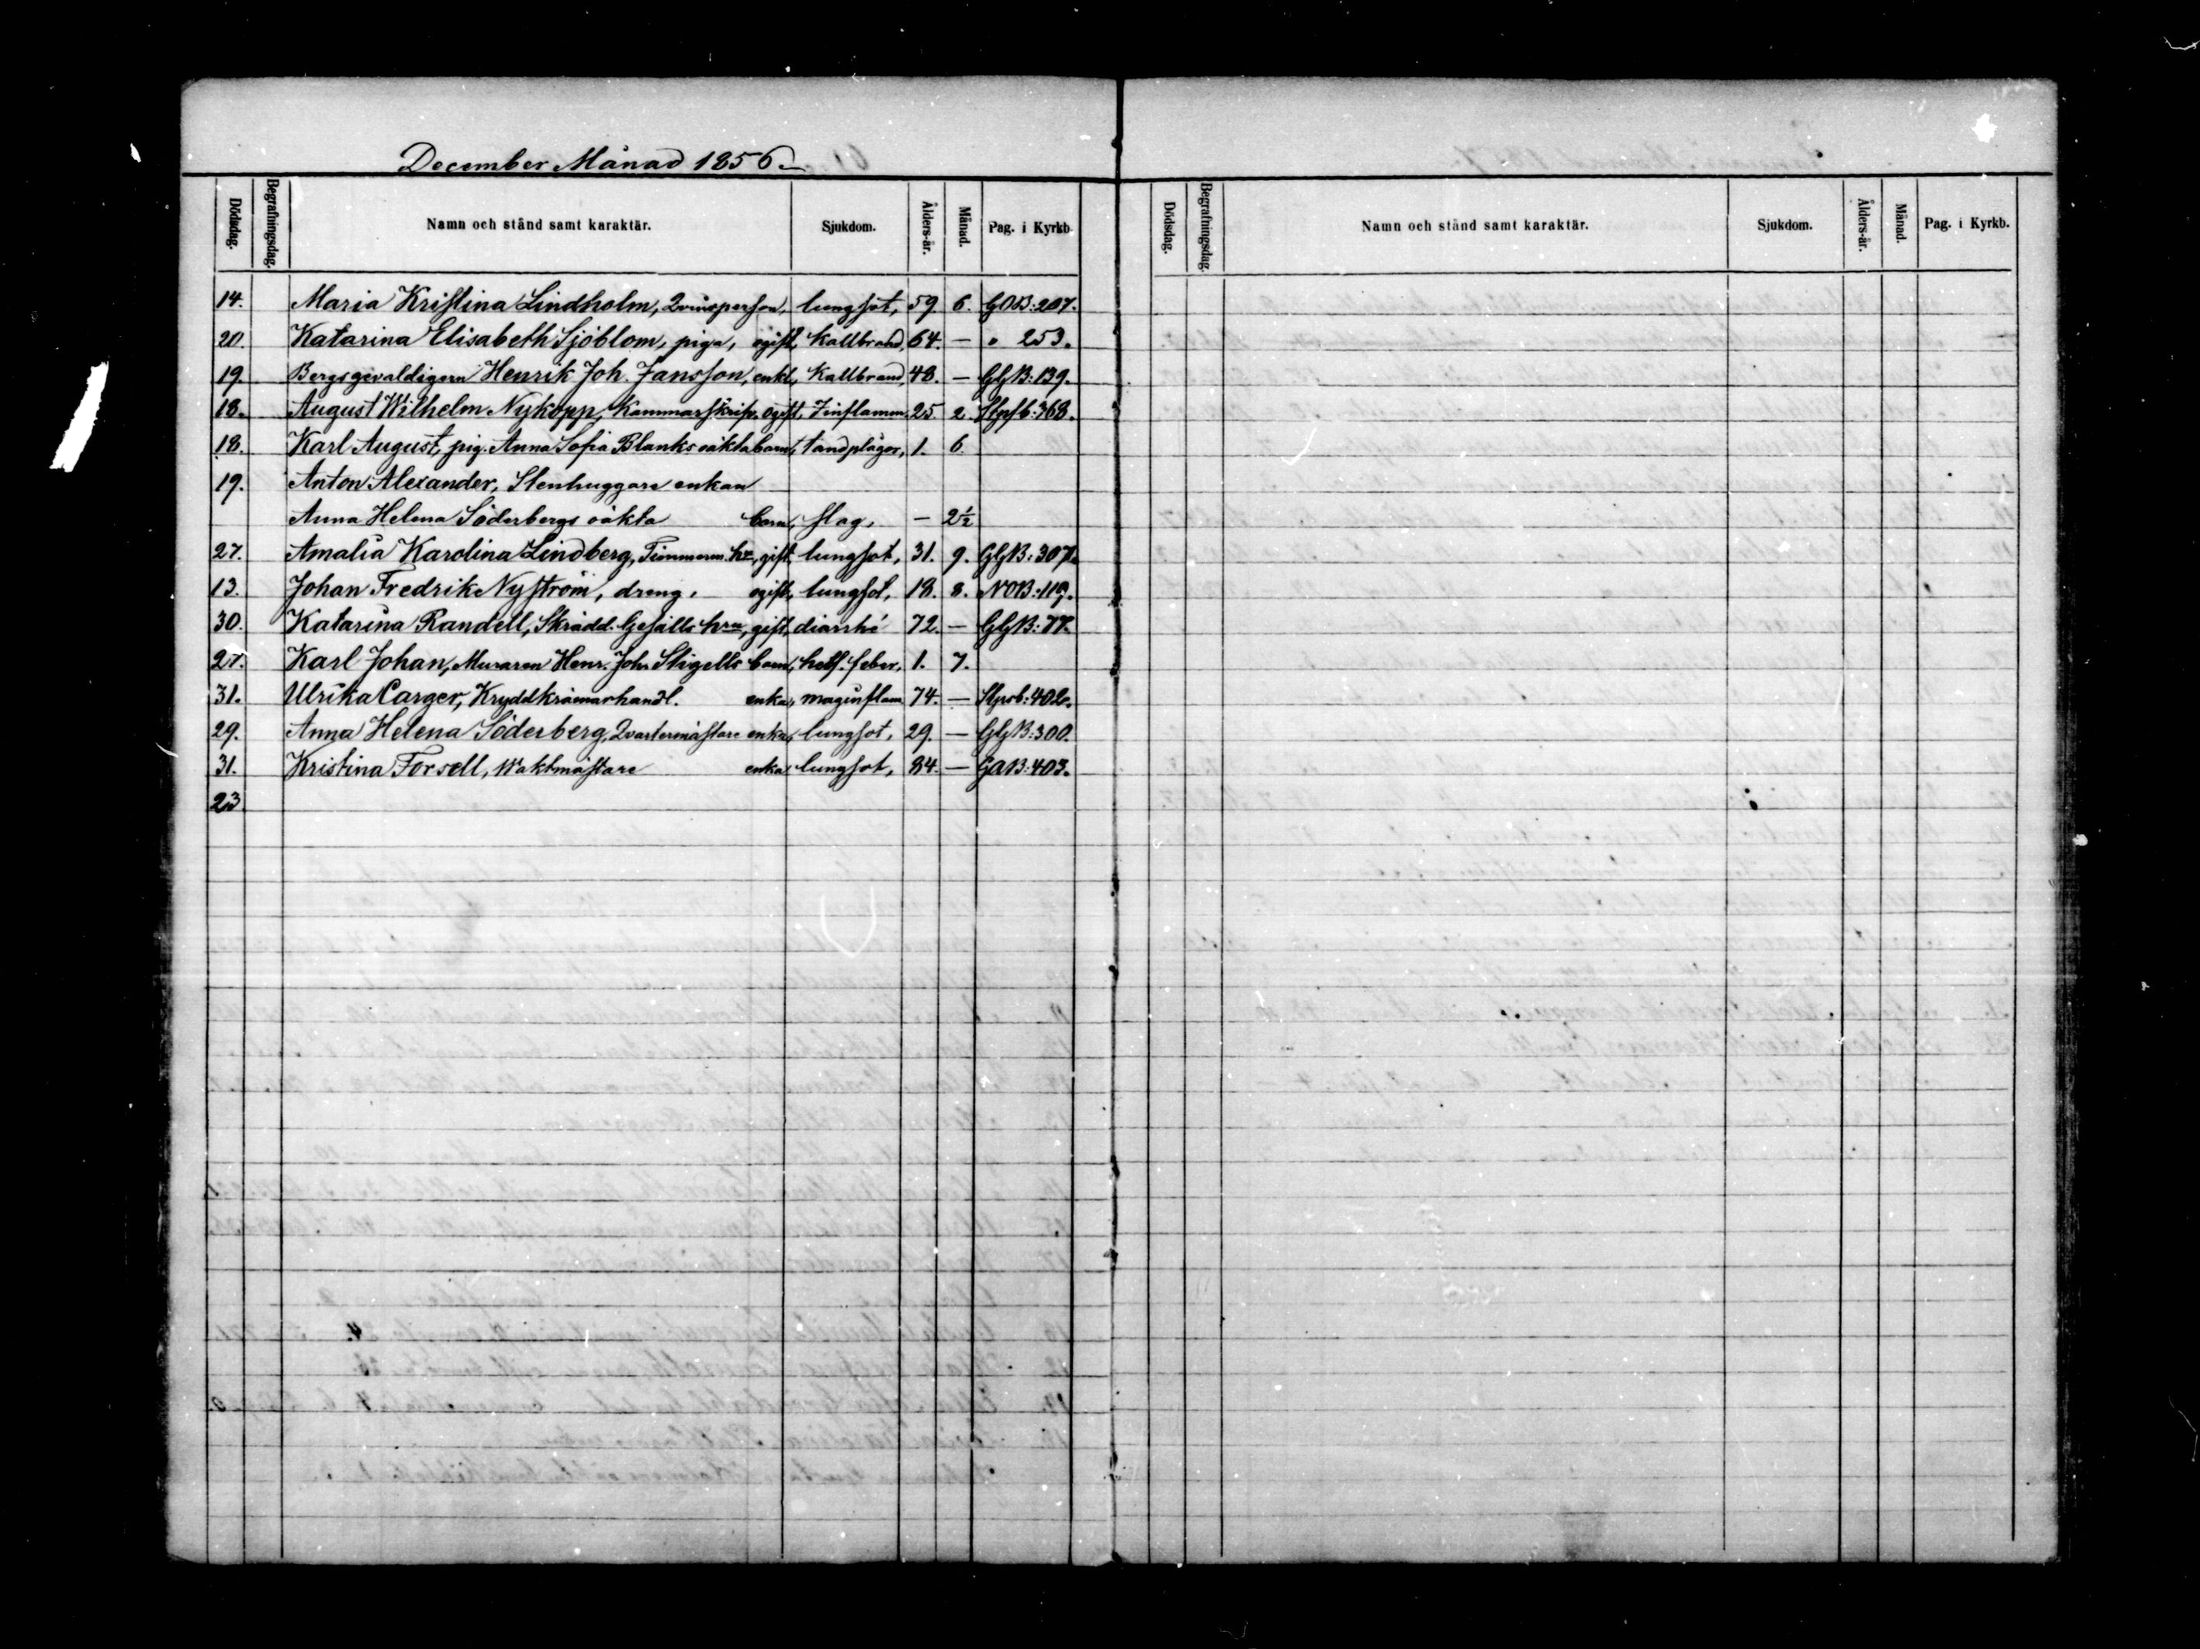 December Månad 1856
Dödsdag. Begrafningsdag. Namn och stånd samt karaktär. Sjukdom. Ålders-år. Månad. Pag. i Kyrkb.
14. Maria Kristina Lindholm, Qvinsperson, lungsot, 59. 6. GOB: 207.
20. Katarina Elisabeth Sjöblom, piga, ogift, Kallbrand, 64. — " 253.
19. Bergsgevaldigern Henrik Joh. Jansson, enkl, Kallbrand, 48. — GGB: 139.
18. August Wilhelm Nykopp, Kammarskrifv. ogift, Inflamm. 25. 2. 368.
18. Karl August, pig. Anna Sofia Blanks oäkta barn, tandplågor, 1. 6.
19. Anton Alexander, Stenhuggare enkan
Anna Helena Söderbergs oäkta barn, slag, — 2½
27. Amalia Karolina Lindberg, Timmerm. hu, gift, lungsot, 31. 9. GGB: 307.
13. Johan Fredrik Nyström, dreng, ogift, lungsot, 18. 8. NOB: 119.
30. Katarina Randell, Skrädd. Gesälls hru, gift, diarrhé 72. — GGB: 77.
27. Karl Johan, Muraren Henr. Joh. Stigells barn, hets. feber, 1. 7.
31. Ulrika Carger, Kryddkrämarhandl. enka, maginflam. 74. — 402.
29. Anna Helena Söderberg, Qvartermästare enka, lungsot, 29. — GGB: 300.
31. Kristina Forsell, Waktmästare enka lungsot, 84. — GAB: 403.
23.
Dödsdag. Begrafningsdag. Namn och stånd samt karaktär. Sjukdom. Ålders-år. Månad. Pag. i Kyrkb.